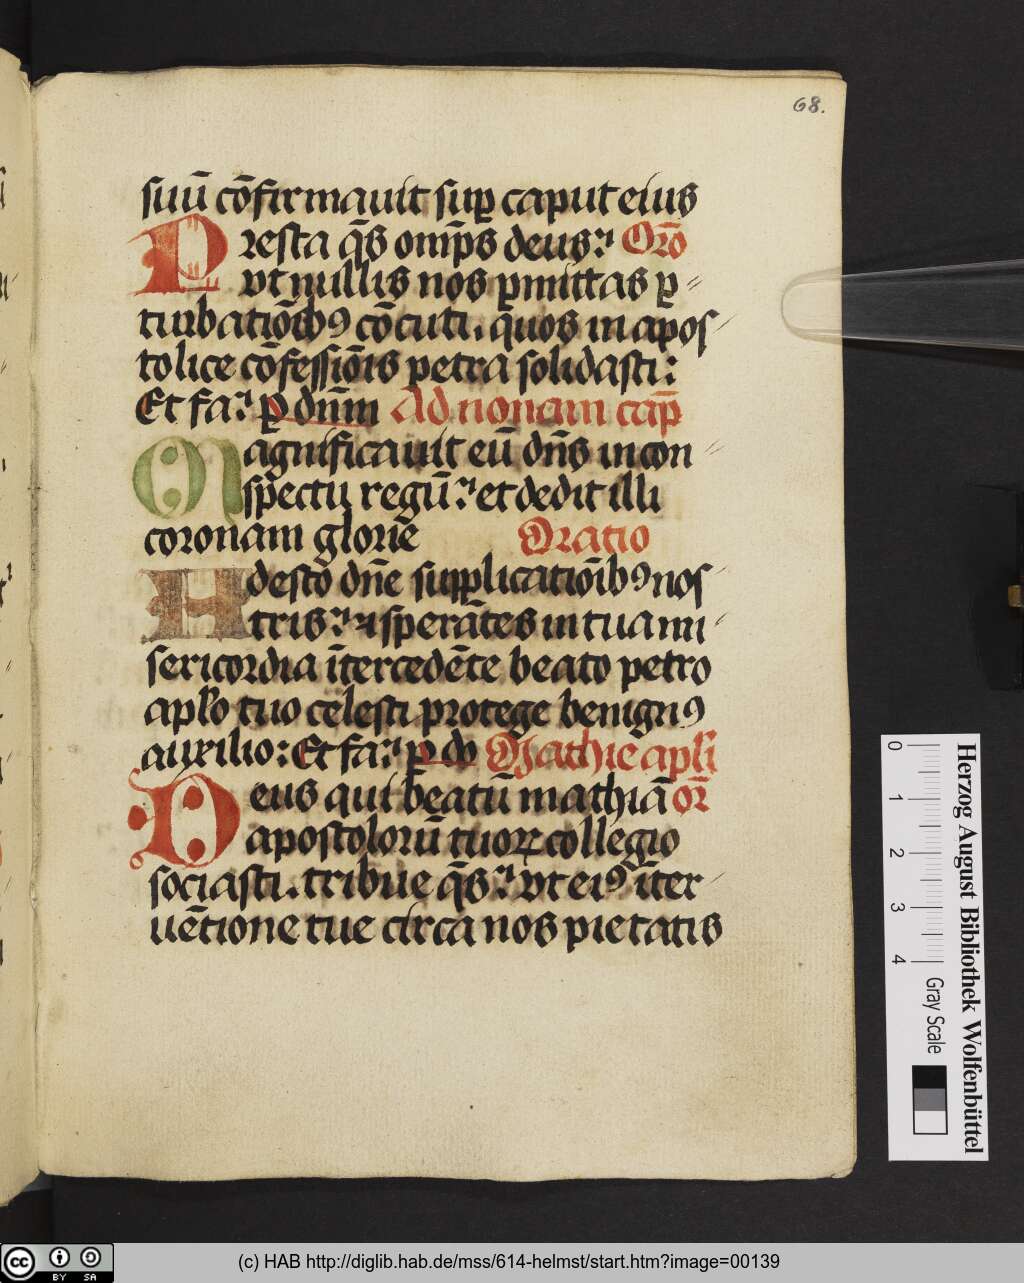 68.
suū cōfirmauit suꝑ caput eius
Presta q̄s omīps deus? Orō
vt nullis nos ꝑmittas ꝑ⸗
turbatiōibꝰ cōcuti. quos in apos⸗
tolice cōfessiōis petra solidasti:
Et fa? ꝑ dnm̄ Ad nonam cap̄
Magnificauit eū dn̄s in con⸗
spectu regū? et dedit illi
coronam glorie Oratio
Adesto dn̄e supplicatiōibꝰ nos⸗
tris? ⁊ sperātes in tua mi⸗
sericordia ītercedēte beato petro
apl̄o tuo celesti protege benignꝰ
auxilio: Et fa? ꝑ do Mathie apl̄i
Deus qui beatū mathiā or̄
apostolorū tuoꝝ collegio
sociasti. tribue q̄s? vt eiꝰ īter⸗
uētione tue circa nos pietatis
Herzog August Bibliothek Wolfenbüttel
0 1 2 3 4 Gray Scale
(c) HAB http://diglib.hab.de/mss/614-helmst/start.htm?image=00139
cc BY SA